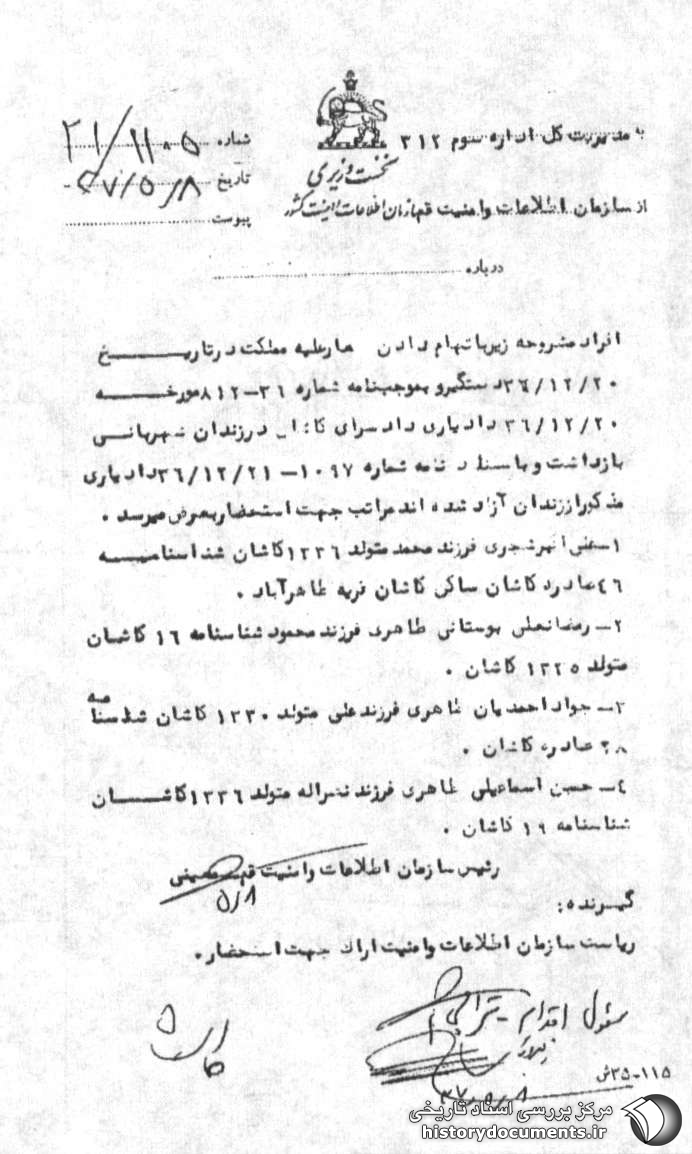 به مدیریت کل اداره سوم ۳۱۲
نخست وزیری
سازمان اطلاعات و امنیت کشور
از سازمان اطلاعات و امنیت قم
شماره ۲۱/۱۱۰۵
تاریخ ۳۷/۵/۸
پیوست
درباره
افراد مشروحه زیر باتهام دادن شعار علیه مملکت در تاریخ
۳۶/۱۲/۲۰ دستگیر و بموجب نامه شماره ۳۱-۸۱۲ مورخه
۳۶/۱۲/۲۰ دادیاری دادسرای کاشان در زندان شهربانی
بازداشت و باستناد نامه شماره ۱۰۹۷-۳۶/۱۲/۲۱ دادیاری
مذکور از زندان آزاد شده اند مراتب جهت استحضار بعرض میرسد.
۱- شجری فرزند محمد متولد ۱۳۳۶ کاشان شناسنامه
۴۶ صادره کاشان ساکن کاشان قریه طاهرآباد.
۲- رمضانعلی بوستانی طاهری فرزند محمود شناسنامه ۱۶ کاشان
متولد ۱۳۳۵ کاشان.
۳- جواد احمدیان طاهری فرزند علی متولد ۱۳۳۰ کاشان شناسنامه
صادره کاشان.
۴- حسن اسماعیلی طاهری فرزند نصراله متولد ۱۳۳۶ کاشان
شناسنامه ۱۹ کاشان.
رئیس سازمان اطلاعات و امنیت قم معینی
۵/۸
گیرنده:
ریاست سازمان اطلاعات و امنیت اراک جهت استحضار.
مسئول اقدام - ترابی
۳۷/۵/۸
۱۱۵-۳۵ش
مرکز بررسی اسناد تاریخی
historydocuments.ir